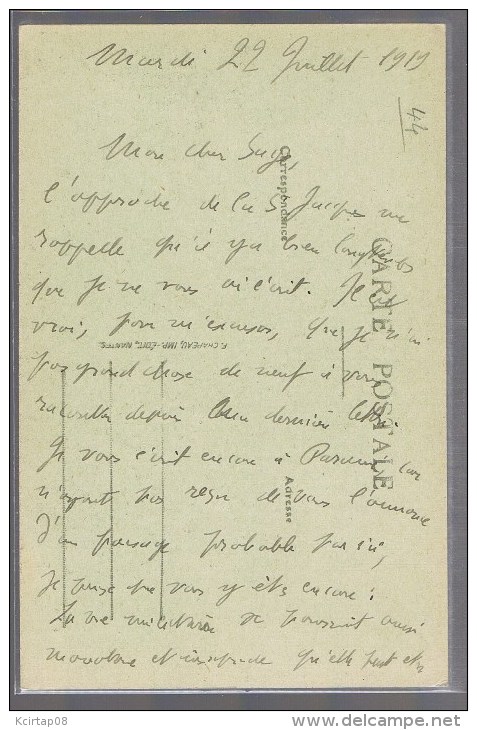 Mardi 22 Juillet 1919
44
Mon cher Guy,
l'approche de la St Jacques me
rappelle qu'il y a bien longtemps
que je ne vous ai écrit. Il est
vrai, pour m'excuser, que je n'ai
pas grand chose de neuf à vous
raconter depuis ma dernière lettre.
Je vous écris encore à car
n'ayant pas reçu de vous l'annonce
d'un passage probable par ici,
je pense que vous y êtes encore.
La vie militaire se poursuit aussi
monotone et insipide qu'elle peut être
CARTE POSTALE
Correspondance
Adresse
F. CHAPEAU, IMP.-ÉDIT., NANTES
Kcirtap08
delcampe.net